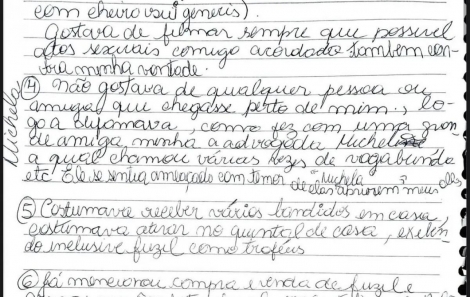 com cheiro "sui generis").
Gostava de filmar sempre que possível
atos sexuais comigo acordada também con-
tra minha vontade.
④ Não gostava de qualquer pessoa ou
amigas que chegasse perto de mim, lo-
go a difamava, como fez com uma gran-
de amiga, minha a advogada Michela
a qual chamou várias vezes de vagabunda
etc. Ele se sentia ameaçado com temor de elas abrirem meus olhos
"Michela"
Michela
⑤ Costumava receber vários bandidos em casa,
costumava atirar no quintal de casa, exibin-
do inclusive fuzil como troféus
⑥ Já mencionou compra e venda de fuzil e